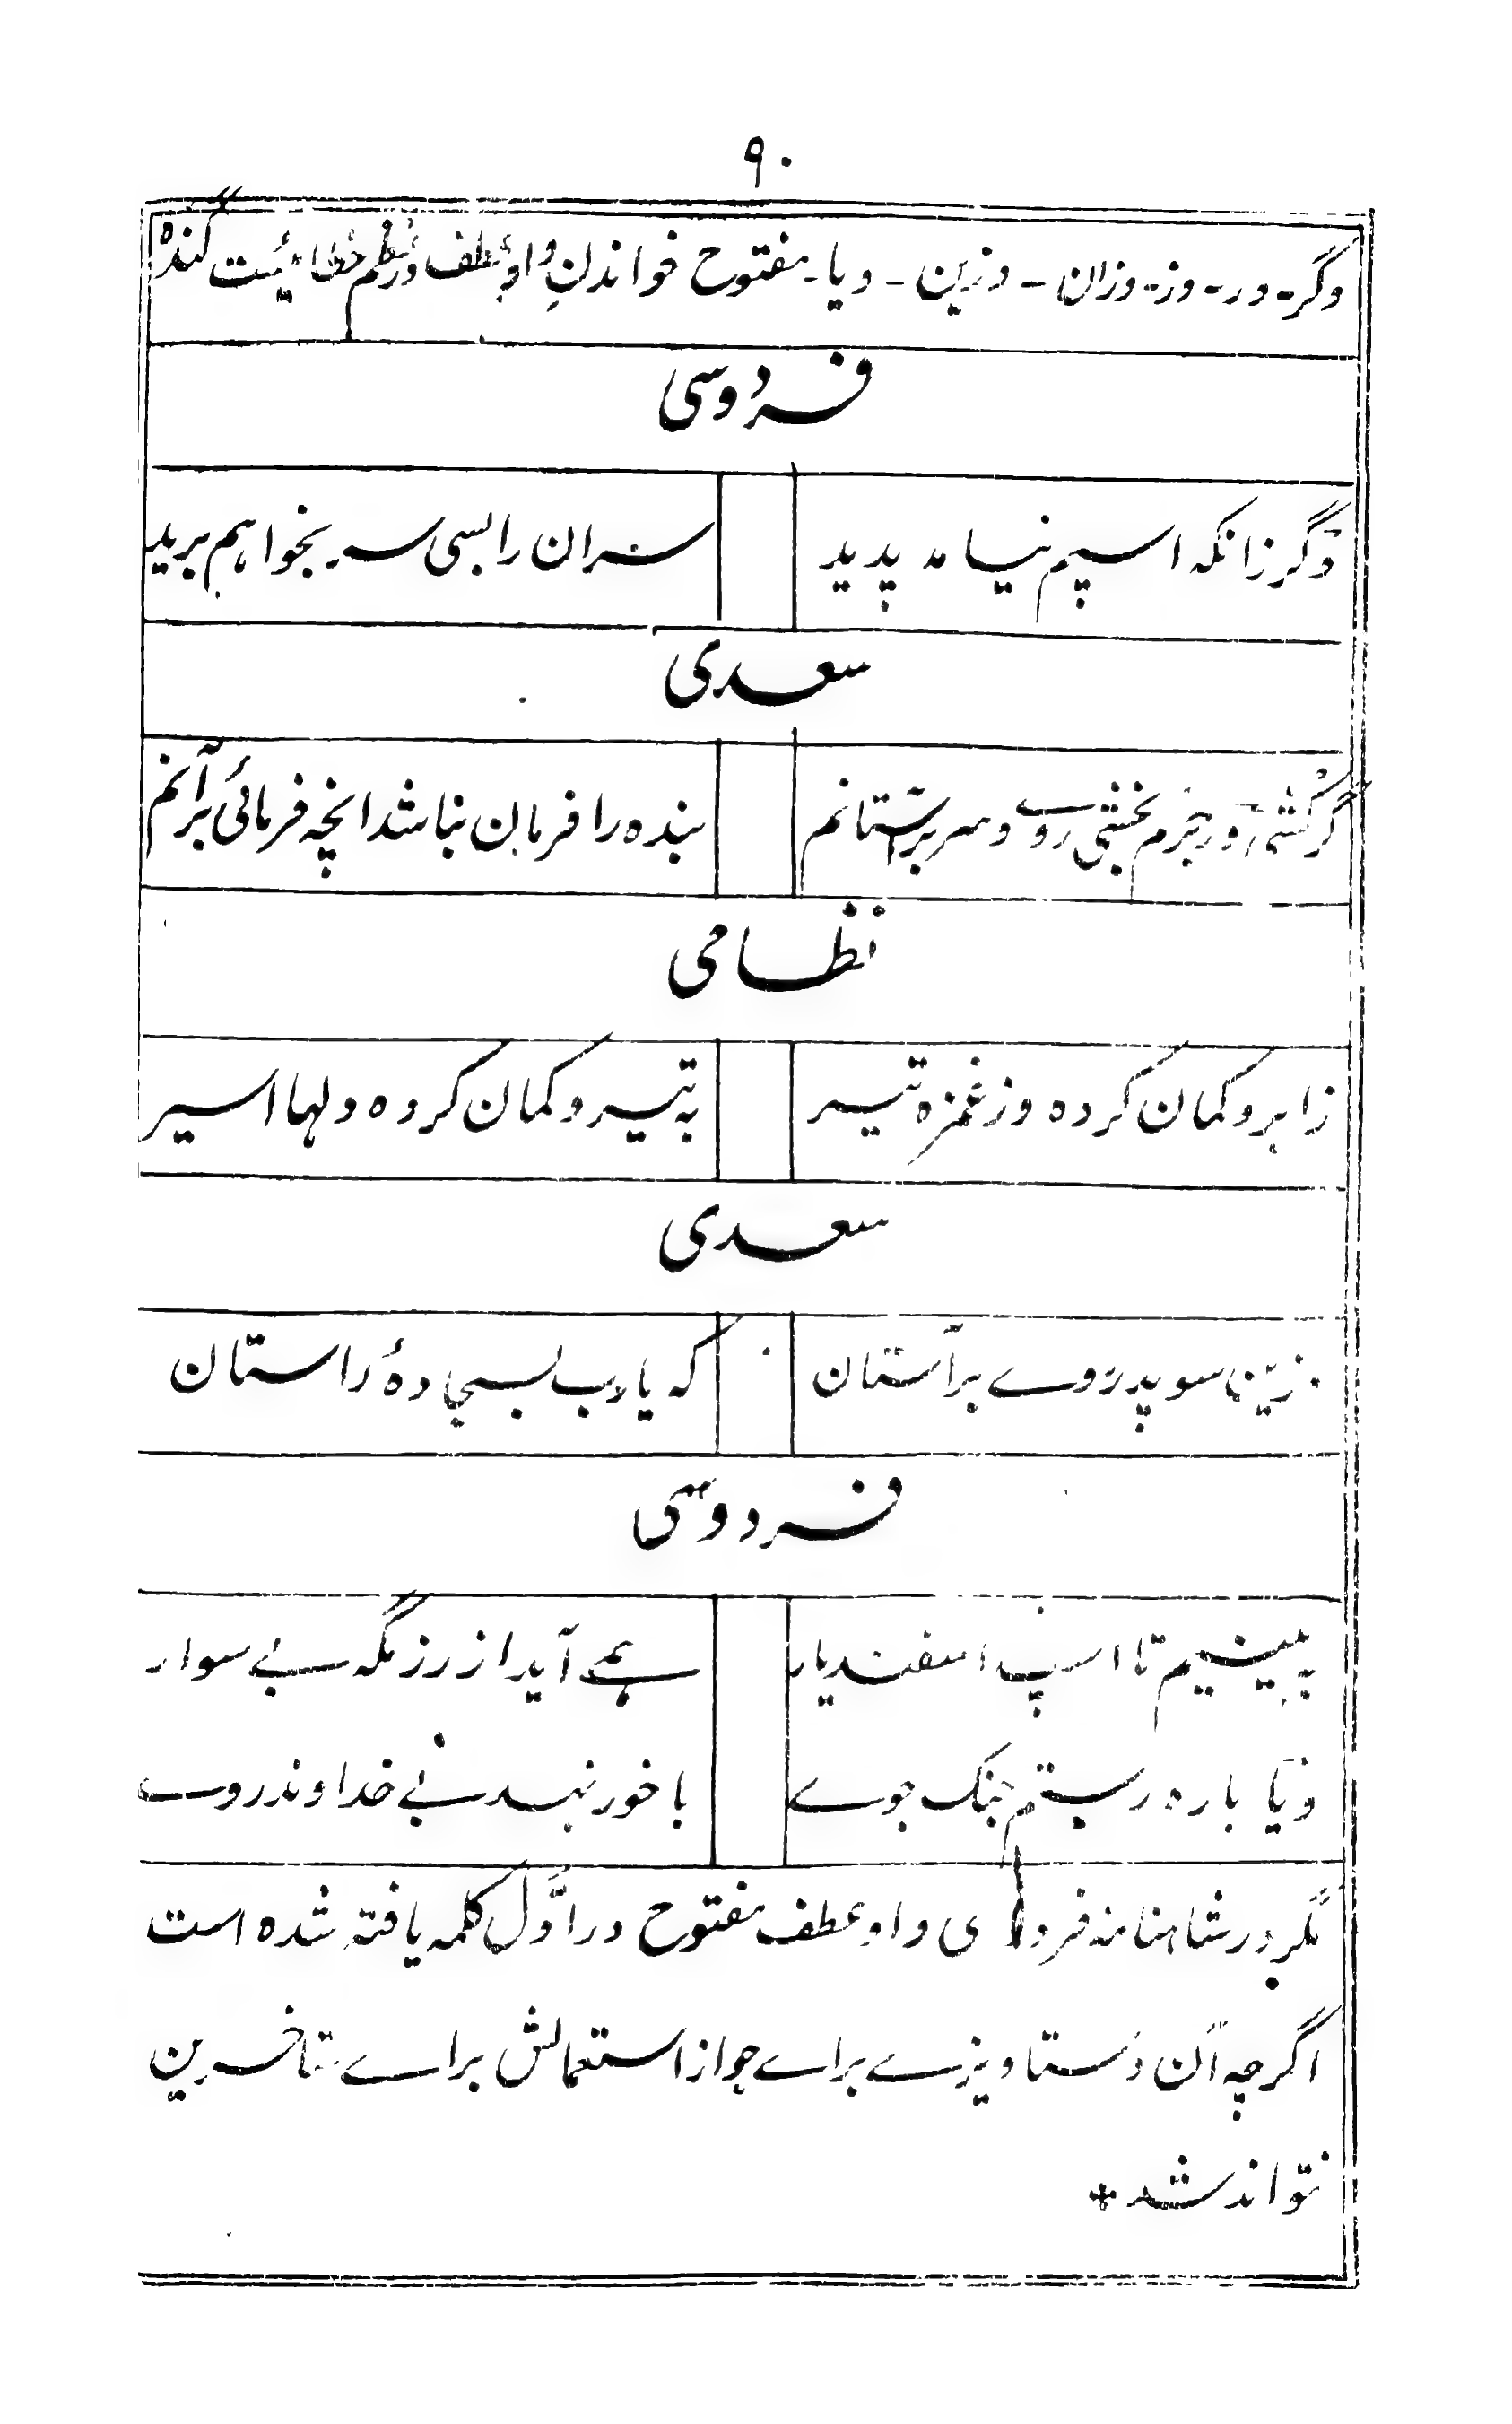 ۹۰
وگر۔ ور۔ وز۔ وزان۔ وزین۔ ویا۔ مفتوح خواندنِ واوِ عطف در نظم خطائیست گنده
فردوسی
وگر زانکه اسپم نیامد پدید
سران را بسی سر بخواهم برید
سعدی
گر کشی ور جرم بخشی روے وسر بر آستانم
بنده را فرمان نباشد انچه فرمائی بر آنم
نظامی
ز ابرو کمان کرده وز غمزه تیر
به تیر و کمان کرده دلها اسیر
سعدی
وزین سو پدر روے بر آستان
که یارب بسجادهٔ راستان
فردوسی
به بینیم تا اسپ اسفندیار
همے آید از رزمگه بے سوار
ویا باره رستم جنگ جوے
با خور نهد بے خداوند روے
مگر در شاهنامه فردوسی واو عطف مفتوح در اوّل کلمه یافته شده است
اگرچه آن دستاویزے براے جواز استعمالش براے متاخرین
نتواند شد *